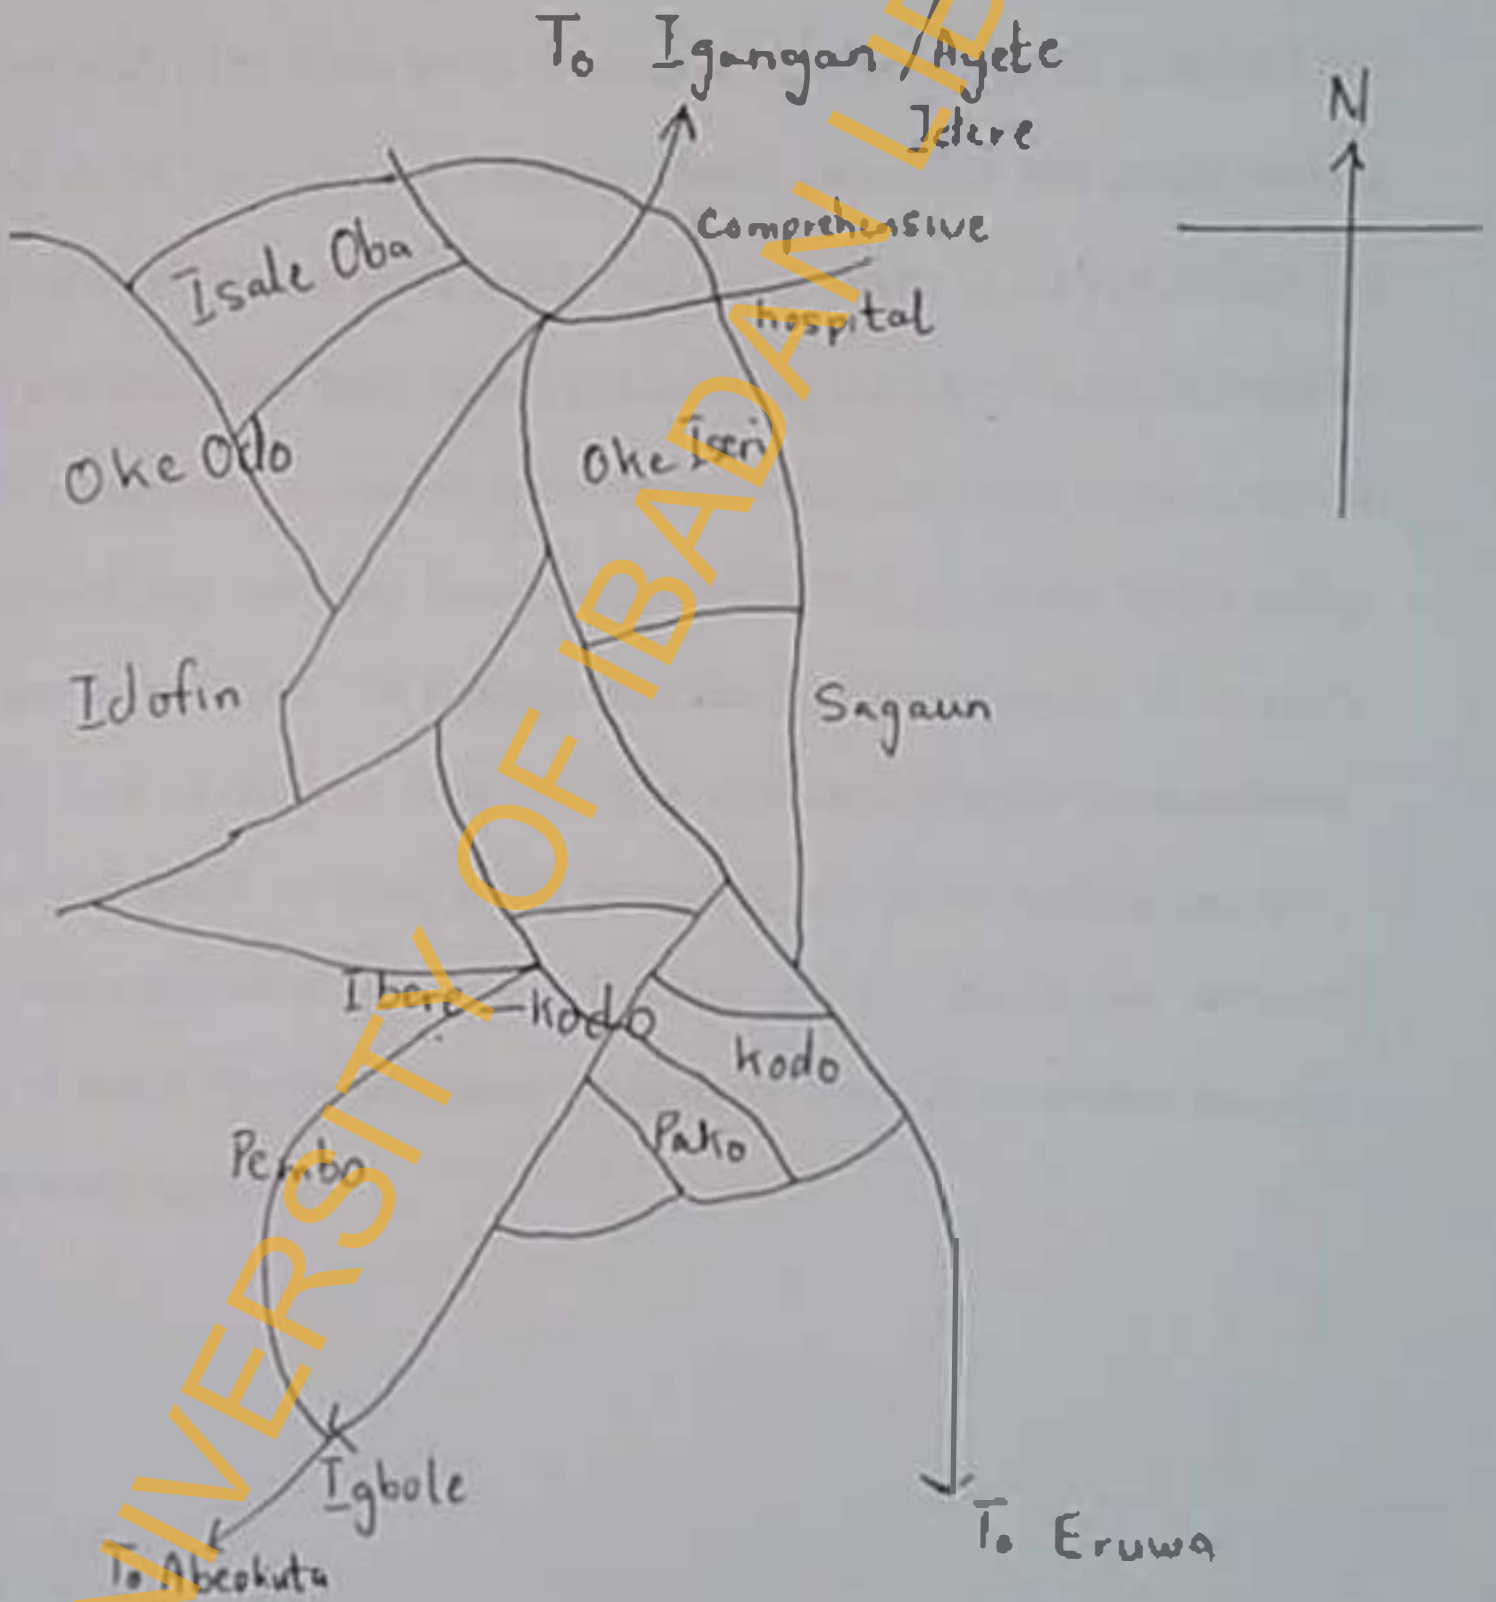 To Igangan / Ayete
Idere
N
Comprehensive
hospital
Isale Oba
Oke Odo
Oke Iseri
Idofin
Sagaun
Ibero-Kodo
Kodo
Pako
Pembo
Igbole
To Abeokuta
To Eruwa
UNIVERSITY OF IBADAN LIB